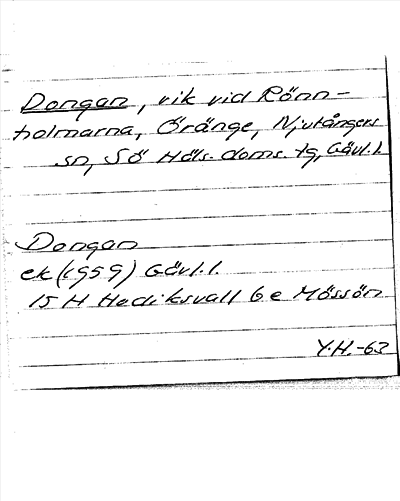 Dongan, vik vid Rönn-
holmarna, Öränge, Njutångers
sn, Sö Häls. doms. tg, Gävl. l.
Dongan
ek (1959) Gävl. l.
15 H Hudiksvall 6 e Mössön
Y.H.-63